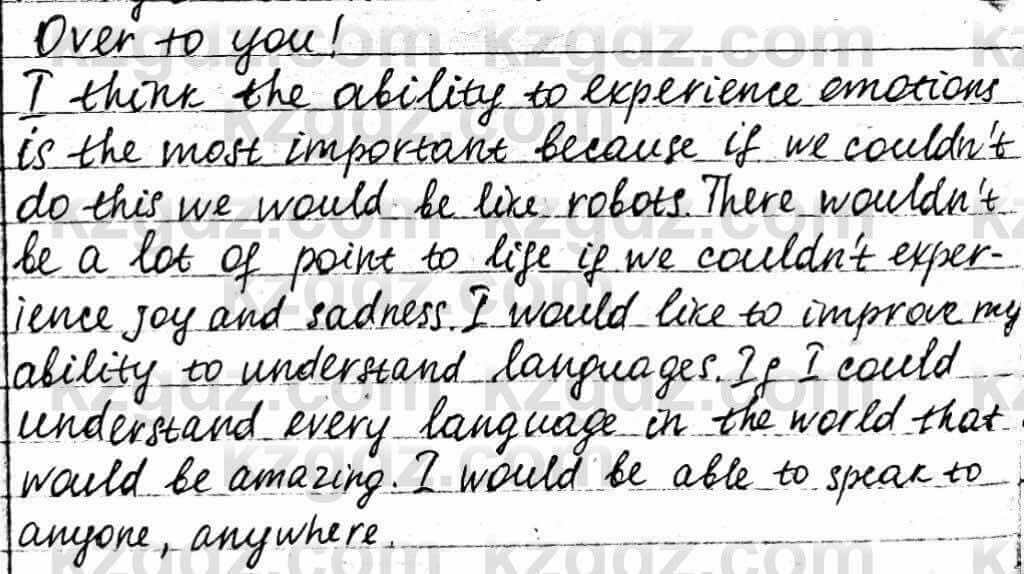 Over to you!
I think the ability to experience emotions
is the most important because if we couldn't
do this we would be like robots. There wouldn't
be a lot of point to life if we couldn't exper-
ience joy and sadness. I would like to improve my
ability to understand languages. If I could
understand every language in the world that
would be amazing. I would be able to speak to
anyone, anywhere.
kzgdz.com